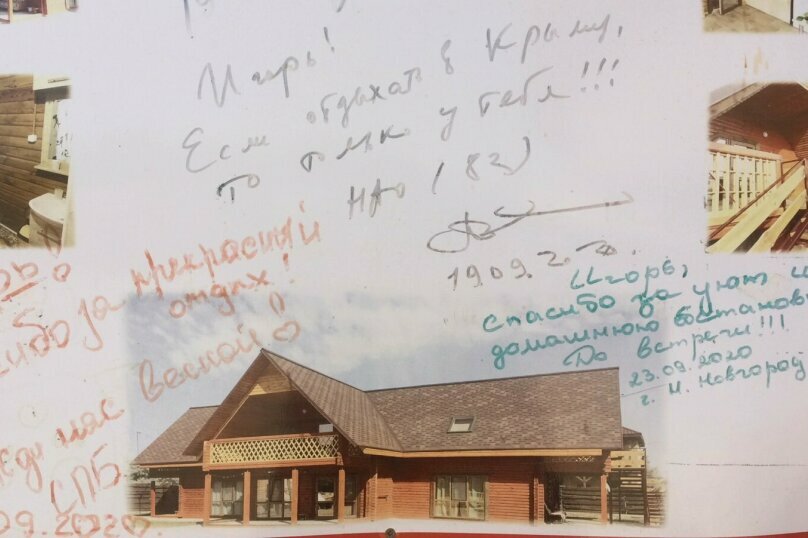 Игорь!
Если отдыхать в Крыму,
то только у тебя!!!
НАО (83)
19.09.2020.
прекрасный
отдых!
весной!!
нас
СПБ.
09.2020.
Игорь,
спасибо за уют и
домашнюю обстановку
До встречи!!!
23.09.2020
г. Н. Новгород